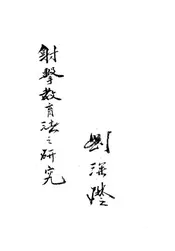 劉
射擊教育法之研究